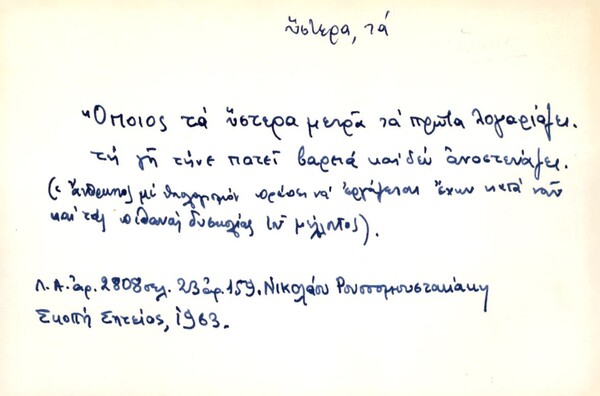 ὕστερα, τά
Ὅποιος τά ὕστερα μετρᾶ τά πρῶτα λογαριάζει.
τή γῆ τήνε πατεῖ βαρειά καί δέν ἀναστενάζει.
(ὁ ἄνθρωπος μέ ὑπολογισμόν πρέπει νά ἐργάζεται ἔχων κατά νοῦν
καί τάς πιθανάς δυσκολίας τοῦ μέλλοντος).
Λ.Α. ἀρ. 2808 σελ. 23 ἀρ. 159. Νικολάου Ρουσσομουστακάκη
Σκοπή Σητείας, 1963.